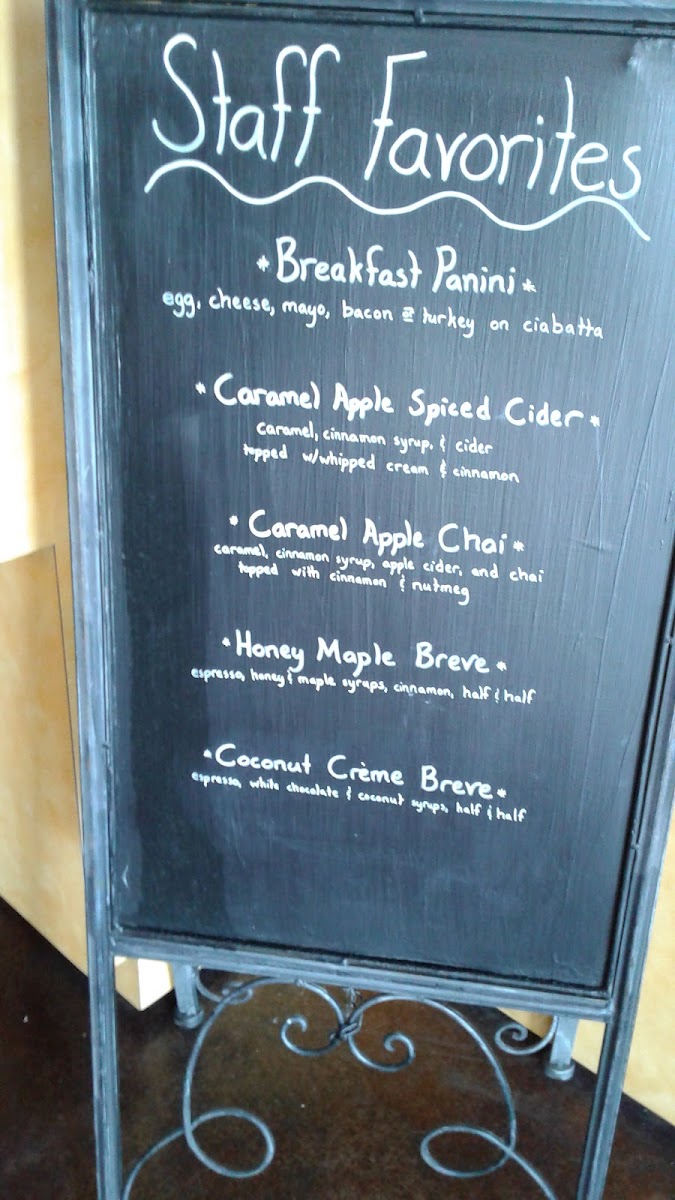 Staff Favorites
*Breakfast Panini*
egg, cheese, mayo, bacon & turkey on ciabatta
*Caramel Apple Spiced Cider*
caramel, cinnamon syrup, & cider
topped w/whipped cream & cinnamon
*Caramel Apple Chai*
caramel, cinnamon syrup, apple cider, and chai
topped with cinnamon & nutmeg
*Honey Maple Breve*
espresso, honey & maple syrups, cinnamon, half & half
*Coconut Crème Breve*
espresso, white chocolate & coconut syrups, half & half